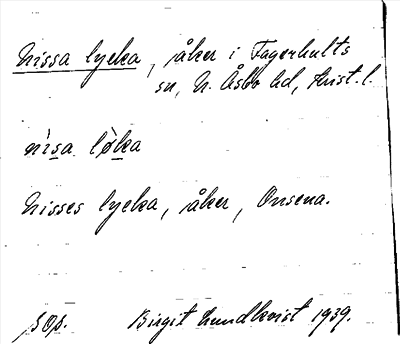 Nissa lycka, åker i Fagerhults
sn, N. Åsbo hd, Krist. l.
nìsa lø̀ka
Nisses lycka, åker, Onsena.
sop. Birgit Lundkvist 1939.